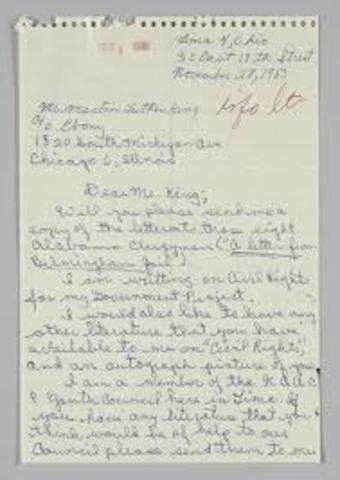 Lima, Ohio
East 11th Street
November 29, 1963
info lt
Mr. Martin Luther King
c/o Ebony
1820 South Michigan Ave
Chicago 6, Illinois
Dear Mr. King;
Will you please send me a
copy of the letter to
Alabama Clergymen ("A letter from
Birmingham Jail")
I am writing on Civil Rights
for my Government Project.
I would also like to have any
other literature that you have
available to me on "Civil Rights,"
and an autograph picture of you
I am a member of the N.A.A.C.
P Youth Council here in Lima. If
you have any literature that you
think would be of help to our
Council please send them to me